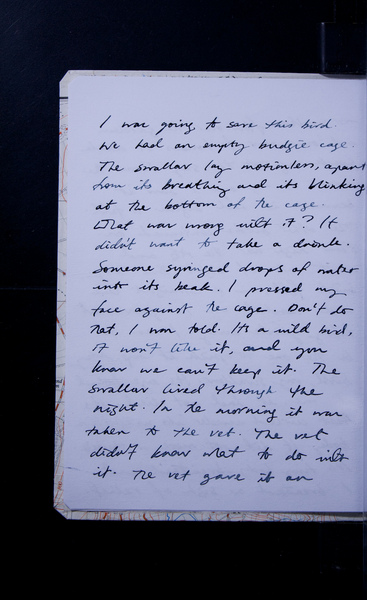 I was going to save this bird.
We had an empty budgie cage.
The swallow lay motionless, apart
from its breathing and its blinking
at the bottom of the cage.
What was wrong with it? It
didn't want to take a drink.
Someone syringed drops of water
into its beak. I pressed my
face against the cage. Don't do
that, I was told. It's a wild bird,
it won't like it, and you
know we can't keep it. The
swallow lived through the
night. In the morning it was
taken to the vet. The vet
didn't know what to do with
it. The vet gave it an